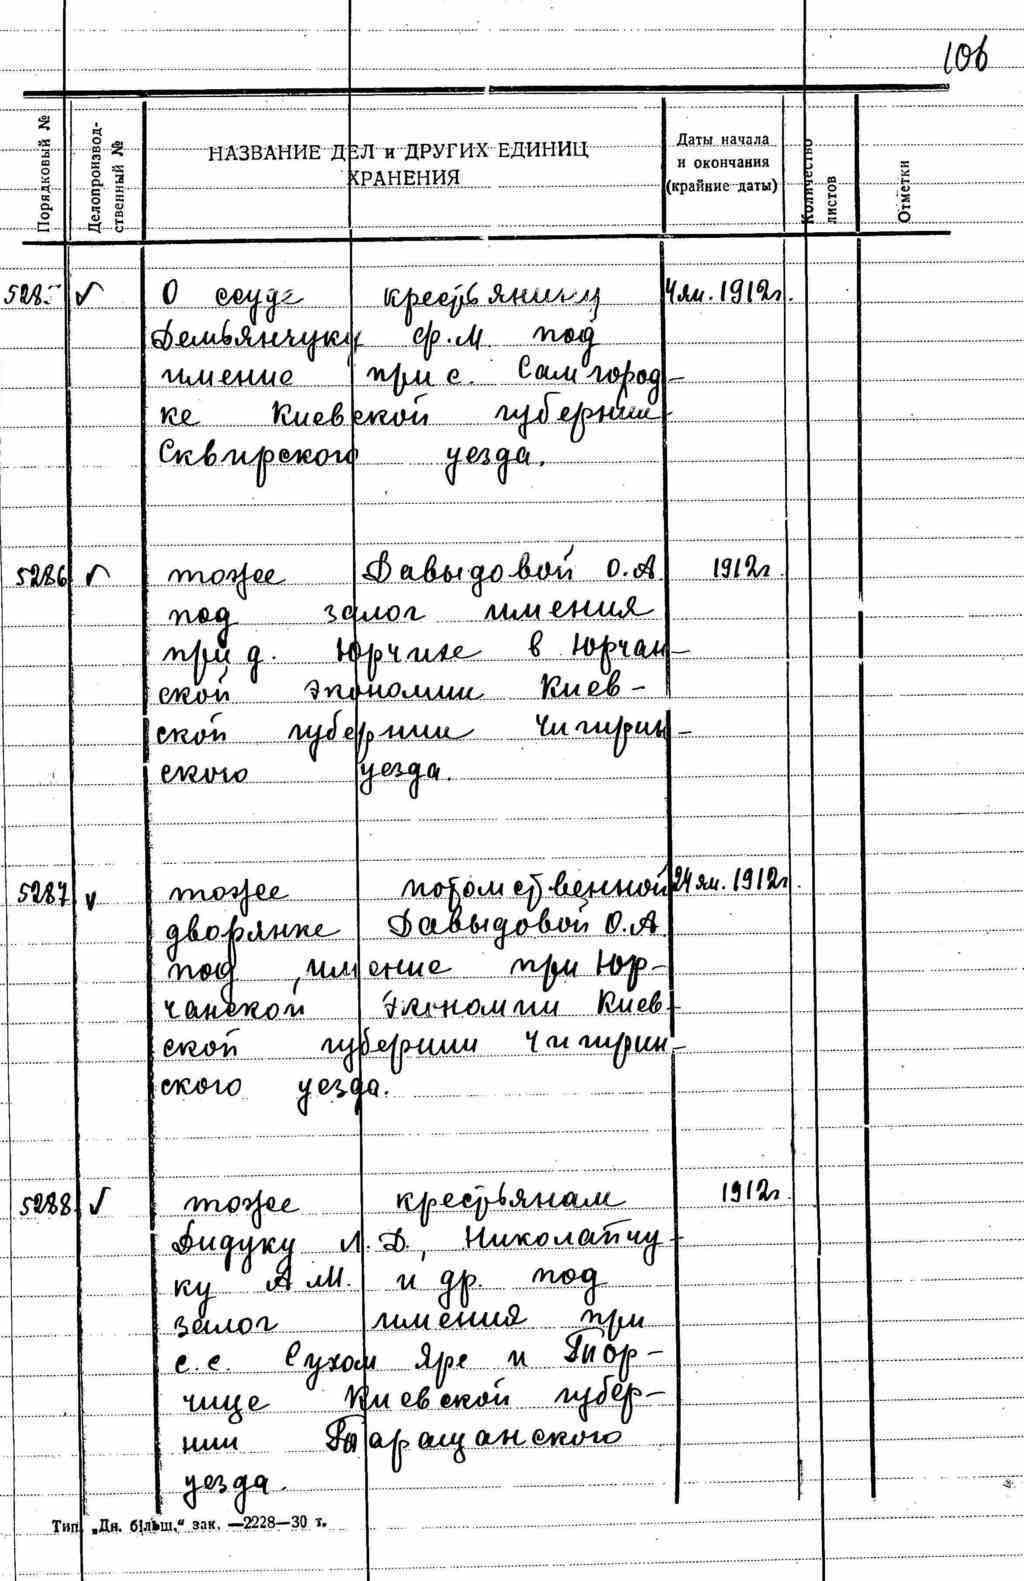 106
Порядковый №
Делопроизвод-
ственный №
НАЗВАНИЕ ДЕЛ и ДРУГИХ ЕДИНИЦ
ХРАНЕНИЯ
Даты начала
и окончания
(крайние даты)
Количество
листов
Отметки
5285 О ссуде крестьянину 4 ян. 1912г.
Демьянчуку Ф.М. под
имение при с. Самгород-
ке Киевской губернии
Сквирского уезда.
5286 тоже Давыдовой О.А. 1912г.
под залог имения
при д. Юрчихе в Юрчан-
ской экономии Киев-
ской губернии Чигирин-
ского уезда.
5287 тоже потомственной 24 ян. 1912г.
дворянке Давыдовой О.А.
под имение при Юр-
чанской экономии Киев-
ской губернии Чигирин-
ского уезда.
5288 тоже крестьянам 1912г.
Дидуку Л.Д., Николайчу-
ку А.М. и др. под
залог имения при
с.с. Сухом Яре и
чице Киевской губер-
нии Таращанского
уезда.
Тип. „Дн. більш.“ зак. —2228—30 т.